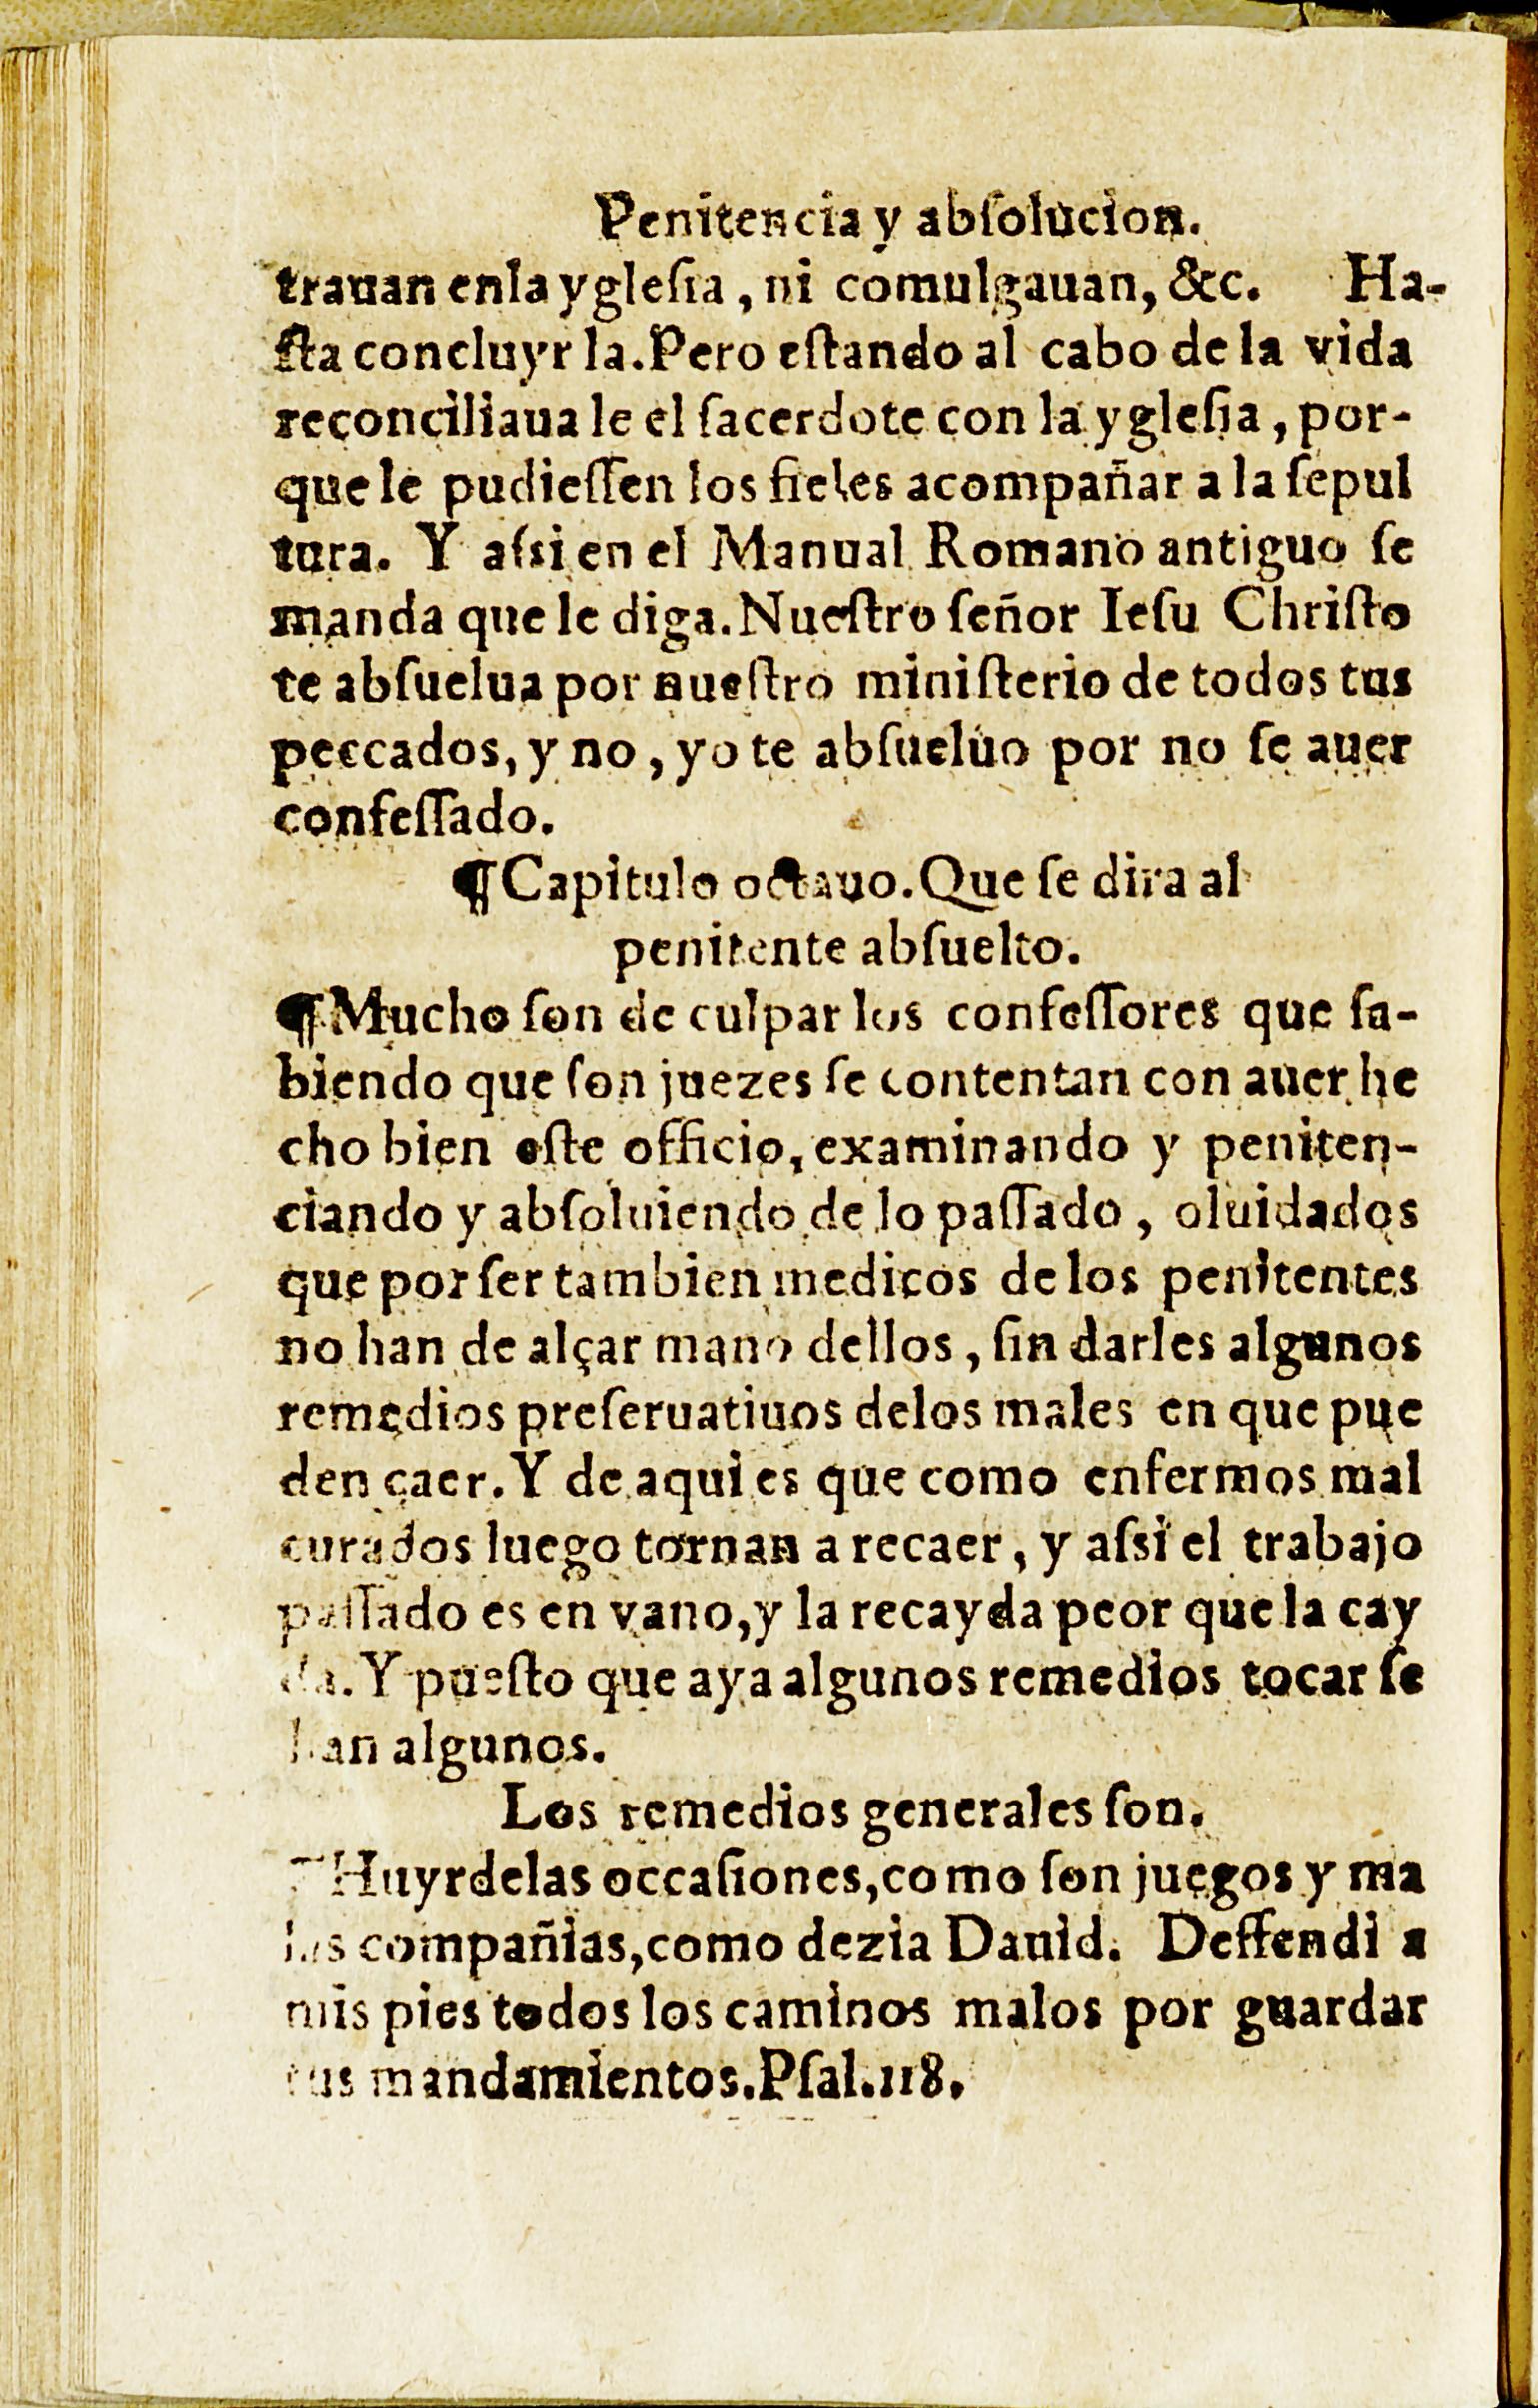 Penitencia y abſolucion.
trauan enla ygleſia, ni comulgauan, &c. Ha-
ſta concluyr la. Pero eſtando al cabo de la vida
reconciliaua le el ſacerdote con la ygleſia, por-
que le pudieſſen los fieles acompañar a la ſepul
tura. Y aſsi en el Manual Romano antiguo ſe
manda que le diga. Nueſtro ſeñor Ieſu Chriſto
te abſuelua por nueſtro miniſterio de todos tus
peccados, y no, yo te abſueluo por no ſe auer
confeſſado.
¶ Capitulo octauo. Que ſe dira al
penitente abſuelto.
¶ Mucho ſon de culpar los confeſſores que ſa-
biendo que ſon juezes ſe contentan con auer he
cho bien eſte officio, examinando y peniten-
ciando y abſoluiendo de lo paſſado, oluidados
que por ſer tambien medicos de los penitentes
no han de alçar mano dellos, ſin darles algunos
remedios preſeruatiuos delos males en que pue
den caer. Y de aqui es que como enfermos mal
curados luego tornan a recaer, y aſsi el trabajo
paſſado es en vano, y la recayda peor que la cay
da. Y pueſto que aya algunos remedios tocar ſe
han algunos.
Los remedios generales ſon.
¶ Huyr delas occaſiones, como ſon juegos y ma
las compañias, como dezia Dauid. Deffendi a
mis pies todos los caminos malos por guardar
tus mandamientos. Pſal. 118.